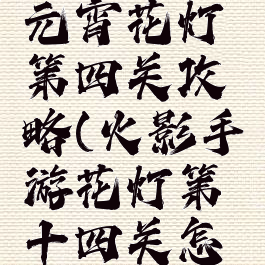 元宵花灯
第四关攻
略(火影手
游花灯第
十四关怎